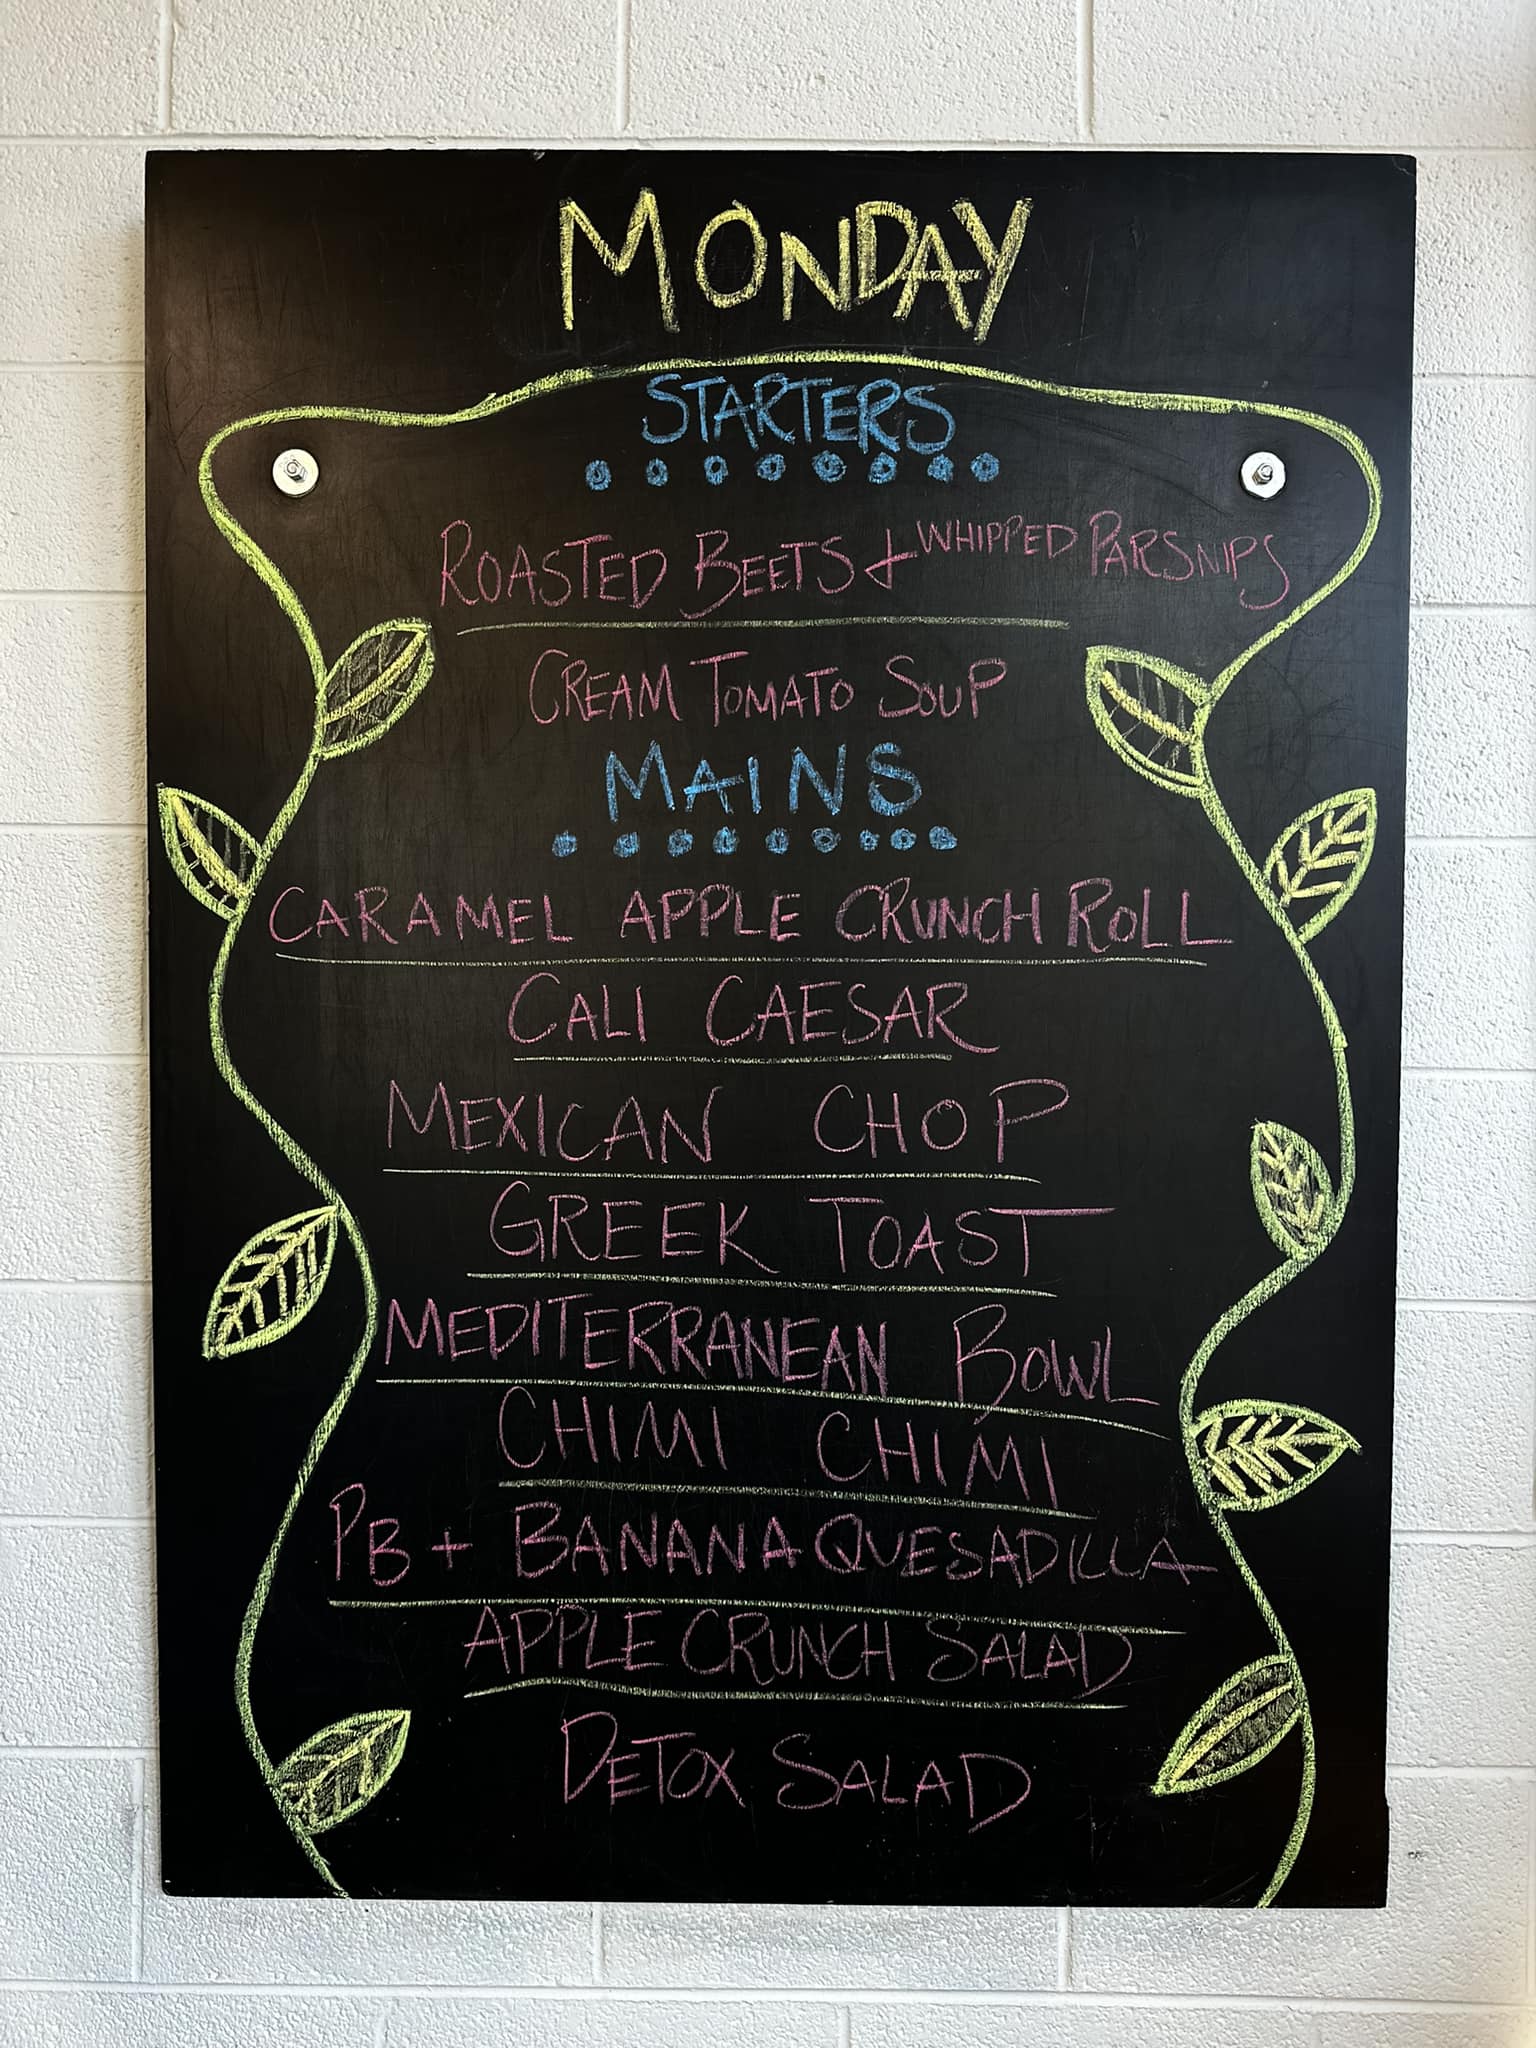 MONDAY
STARTERS
ROASTED BEETS + WHIPPED PARSNIPS
CREAM TOMATO SOUP
MAINS
CARAMEL APPLE CRUNCH ROLL
CALI CAESAR
MEXICAN CHOP
GREEK TOAST
MEDITERRANEAN BOWL
CHIMI CHIMI
PB + BANANA QUESADILLA
APPLE CRUNCH SALAD
DETOX SALAD